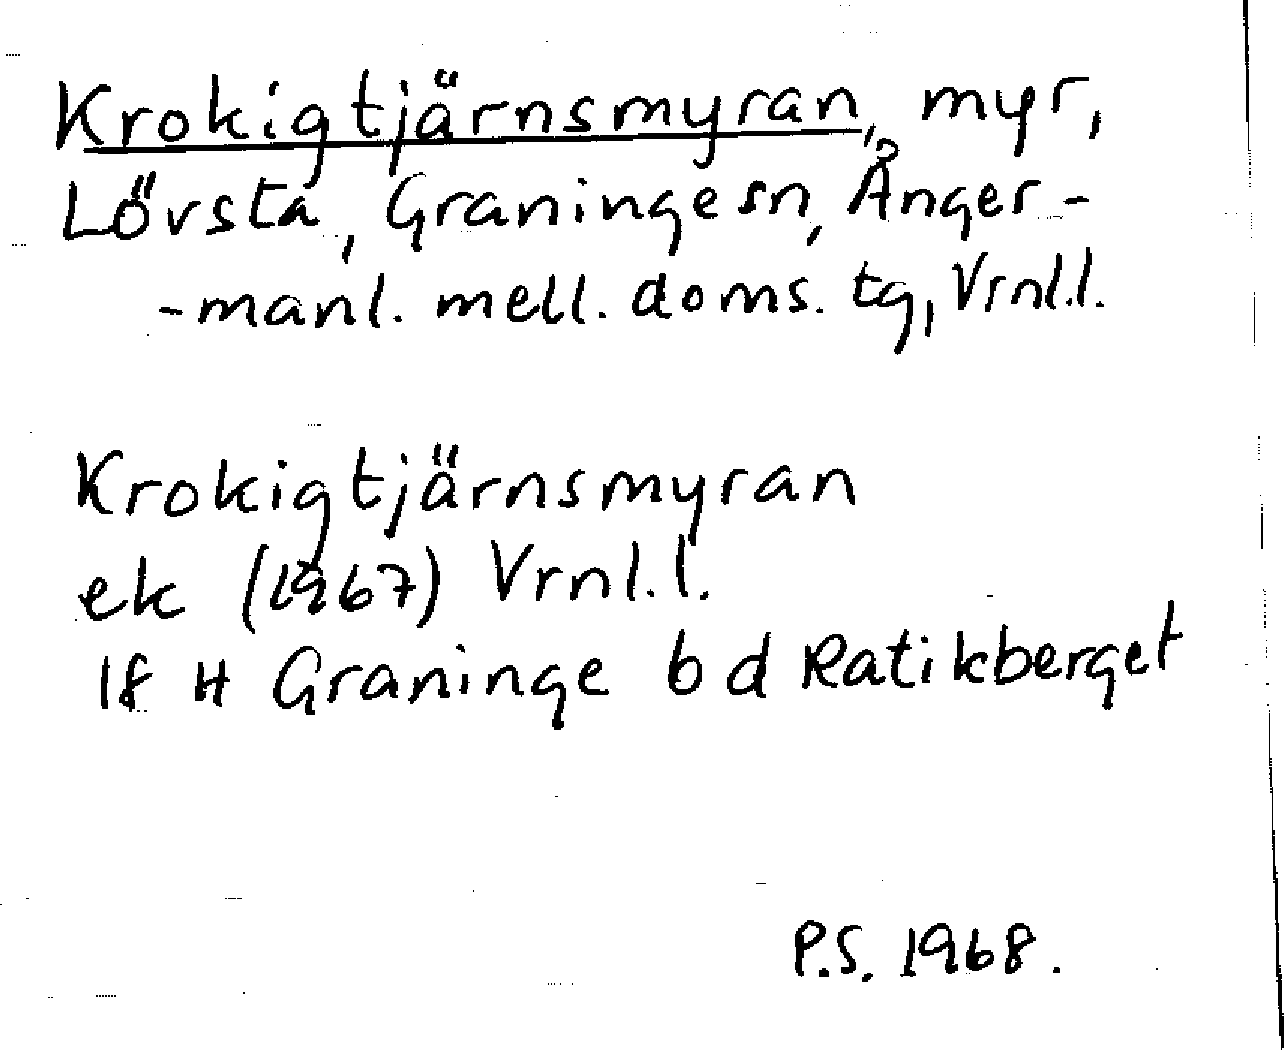 Krokigtjärnsmyran, myr,
Lövsta, Graninge sn, Ånger-
-manl. mell. doms. tg, Vrnl.l.
Krokigtjärnsmyran
ek (1967) Vrnl.l.
18 H Graninge b d Ratikberget
P.S. 1968.